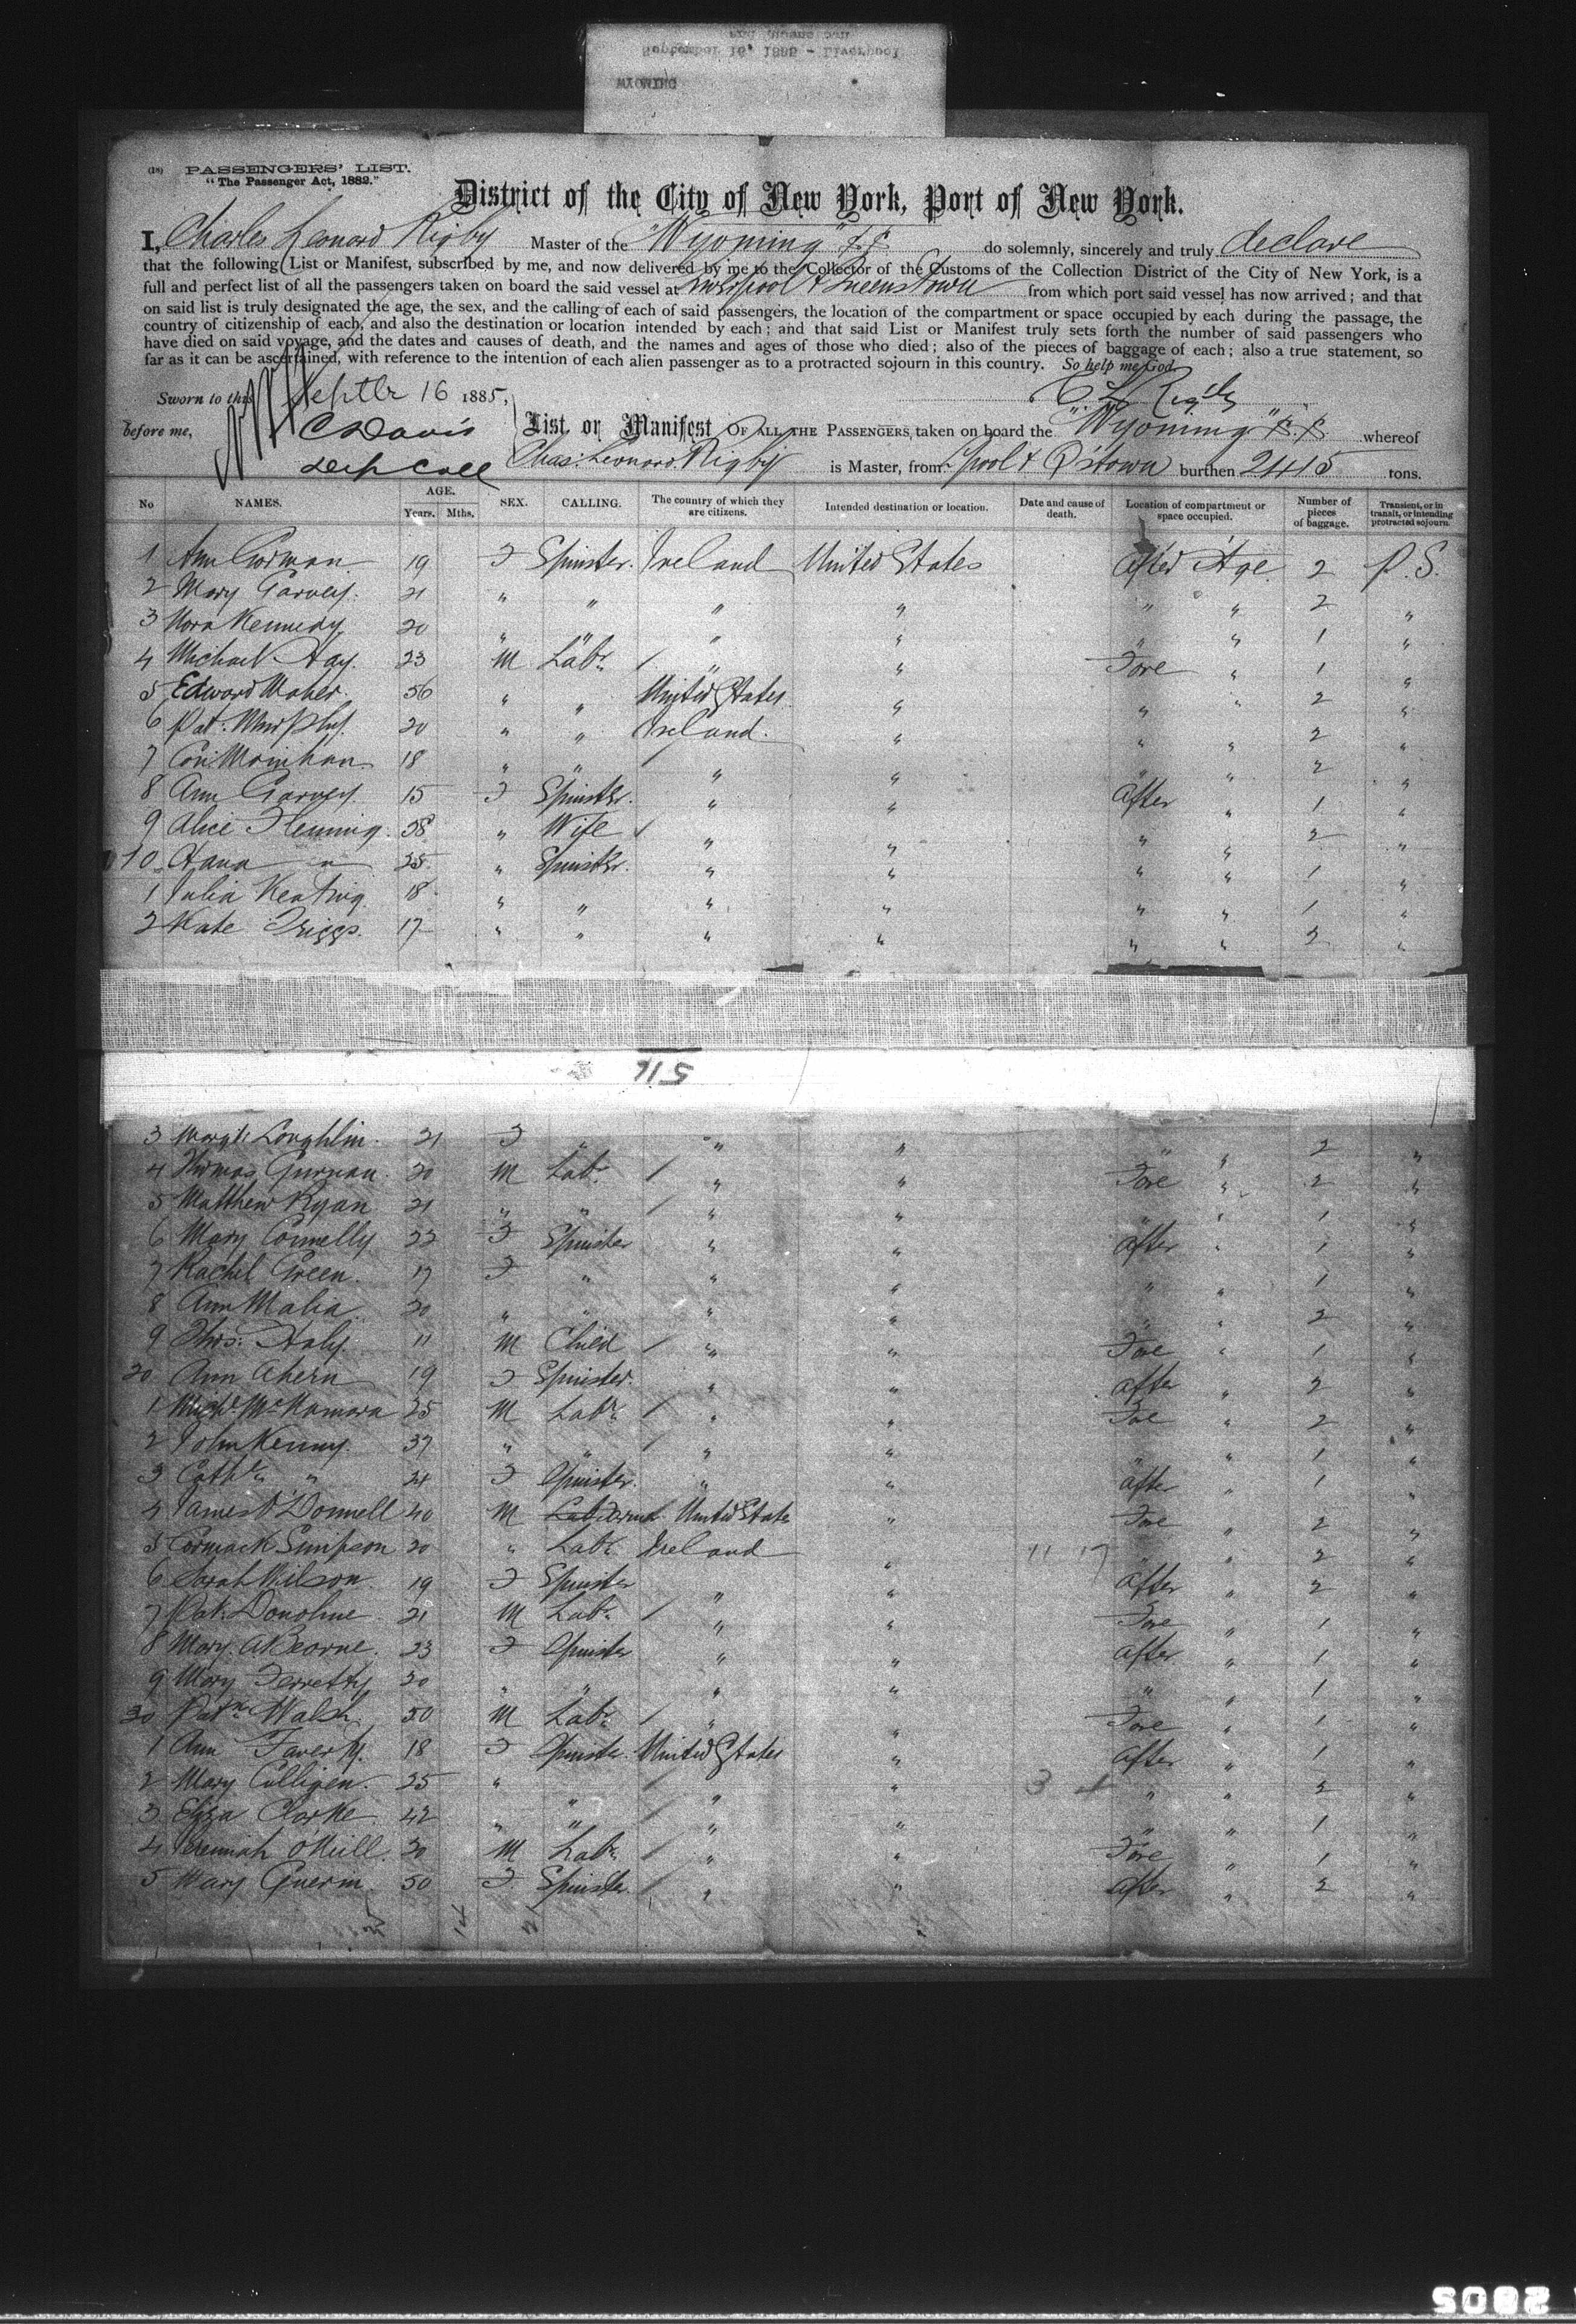 and Queenstown
September 16, 1885 - Liverpool
WYOMING
(18) PASSENGERS' LIST.
"The Passenger Act, 1882."
District of the City of New York, Port of New York.
I, Charles Leonard Rigby Master of the "Wyoming" S.S. do solemnly, sincerely and truly declare
that the following List or Manifest, subscribed by me, and now delivered by me to the Collector of the Customs of the Collection District of the City of New York, is a
full and perfect list of all the passengers taken on board the said vessel at Liverpool & Queenstown from which port said vessel has now arrived; and that
on said list is truly designated the age, the sex, and the calling of each of said passengers, the location of the compartment or space occupied by each during the passage, the
country of citizenship of each, and also the destination or location intended by each; and that said List or Manifest truly sets forth the number of said passengers who
have died on said voyage, and the dates and causes of death, and the names and ages of those who died; also of the pieces of baggage of each; also a true statement, so
far as it can be ascertained, with reference to the intention of each alien passenger as to a protracted sojourn in this country. So help me God.
Sworn to this Septbr 16 1885, C L Rigby
before me, C Davis
Dep Coll
List or Manifest OF ALL THE PASSENGERS, taken on board the "Wyoming" S.S. whereof
Chas. Leonard Rigby is Master, from L'pool & Q'stown burthen 2415 tons.
No NAMES. AGE. Years. Mths. SEX. CALLING. The country of which they are citizens. Intended destination or location. Date and cause of death. Location of compartment or space occupied. Number of pieces of baggage. Transient, or in transit, or intending protracted sojourn.
1 Ann Gorman 19 F Spinster. Ireland United States After Stge 2 P.S.
2 Mary Garvey. 21 " " " " " " 2 "
3 Nora Kennedy 20 " " " " " " 1 "
4 Michael Hay. 23 M Labr. / " " Fore " 1 "
5 Edward Maher. 56 " " United States " " " 2 "
6 Pat. Murphy. 20 " " Ireland. " " " 2 "
7 Con Moinihan 18 " " " " " " 2 "
8 Ann Garvey. 15 F Spinster. " " After " 1 "
9 Alice Fleming. 58 " Wife " " " " 2 "
10 Hana " 25 " Spinster. " " " " 1 "
1 Julia Keating. 18 " " " " " " 1 "
2 Kate Triggs. 17 " " " " " " 2 "
516
3 Margt. Loughlin. 21 F " " " " " 2 "
4 Thomas 20 M Labr. / " " Fore " 2 "
5 Matthew Ryan 21 " " / " " " " 1 "
6 Mary Connelly 22 F Spinster " " After " 1 "
7 Rachel Green. 17 F " " " " " 1 "
8 Ann Malia 20 " " " " " " 2 "
9 Thos. Haly. 11 M Child / " " Fore " 1 "
20 Ann Ahern 19 F Spinster. " " After " 2 "
1 Michl. McNamara 25 M Labr. / " " Fore " 2 "
2 John Kenny. 37 " " / " " " " 1 "
3 Cathe. " 24 F Spinster. " " After " 1 "
4 James O'Donnell 40 M United States " Fore " 2 "
5 Cormack Simpson 20 " Labr. Ireland " 11 17 " " 2 "
6 Sarah Wilson 19 F Spinster " " After " 2 "
7 Pat. Donohue. 21 M Labr. / " " Fore " 1 "
8 Mary A Bearne. 23 F Spinster " " After " 1 "
9 Mary Ferretty 20 " " " " " " 1 "
30 Patk. Walsh. 50 M Labr. / " " Fore " 1 "
1 Ann Faverty. 18 F Spinster. United States " After " 1 "
2 Mary Culligen. 25 " " / " " 3 " " 2 "
3 Eliza Clarke 42 " " / " " " " 1 "
4 Jeremiah O'Neill. 30 M Labr. / " " Fore " 1 "
5 Mary Guerin. 50 F Spinster / " " After " 2 "